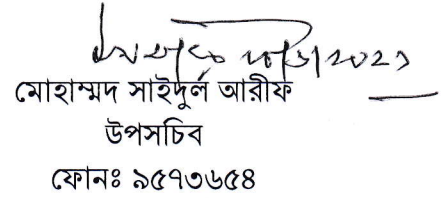 মোহাম্মদ সাইদুর্ল আরীফ
উপসচিব
ফোনঃ ৯৫৭৩৬৫৪